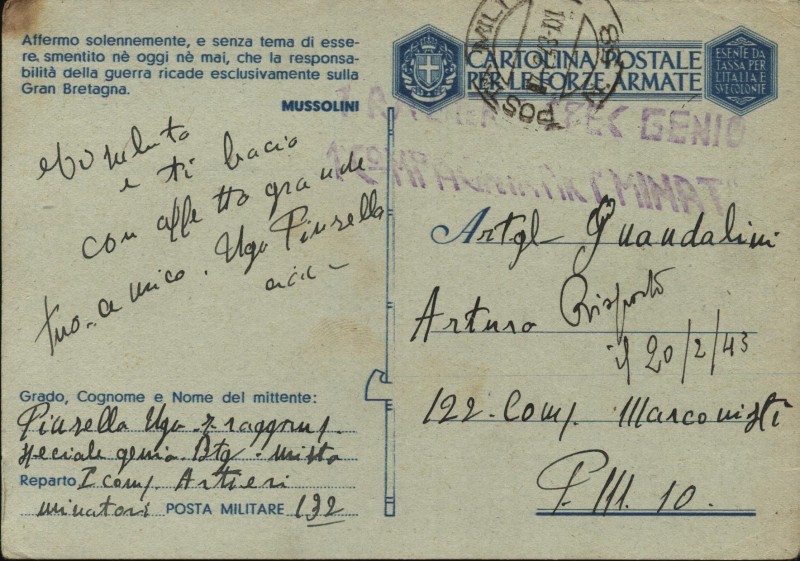 Affermo solennemente, e senza tema di esse-
re smentito nè oggi nè mai, che la responsa-
bilità della guerra ricade esclusivamente sulla
Gran Bretagna.
MUSSOLINI
e ti bacio
con affetto grande
tuo amico. Ugo Piurella
ciao
Grado, Cognome e Nome del mittente:
Piurella Ugo raggrup.
speciale genio. Btg. misto
Reparto I comp. Artieri
minatori POSTA MILITARE 132
CARTOLINA POSTALE
PER LE FORZE ARMATE
ESENTE DA
TASSA PER
L'ITALIA E
SVE COLONIE
SPEC GENIO
Artgl Guandalini
Arturo
Risposto
il 20/2/43
122. Comp. Marconisti
P.M. 10.